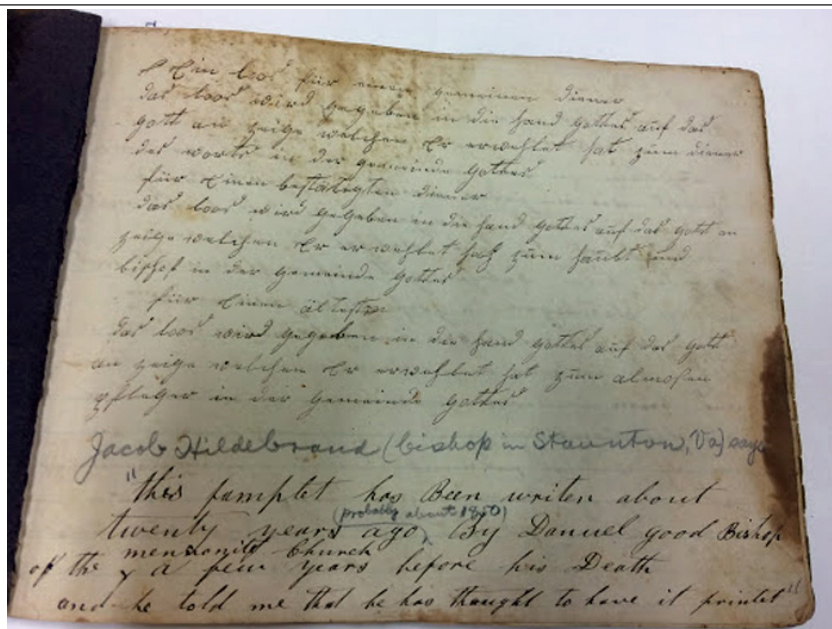 Ein loos für einen gemeinen diener
das loos wird gegeben in die hand gottes auf das
gott an zeige welchen Er erwehlet hat zum diener
des worts in der gemeinde gottes
für Einen bestätigten diener
das loos wird gegeben in die hand gottes auf das gott an
zeige welchen Er erwehlet hat zum haubt und
bischof in der gemeinde gottes
für Einen ältesten
das loos wird gegeben in die hand gottes auf das gott
an zeige welchen Er erwehlet hat zum almosen
pfleger in der gemeinde gottes
Jacob Hildebrand (bishop in Staunton, Va) says
"this pamplet has Been writen about
(probably about 1850)
twenty years ago, By Danuel good Bishop
mennonite Church
of the a few years before his Death
and he told me that he has thaught to have it printet"